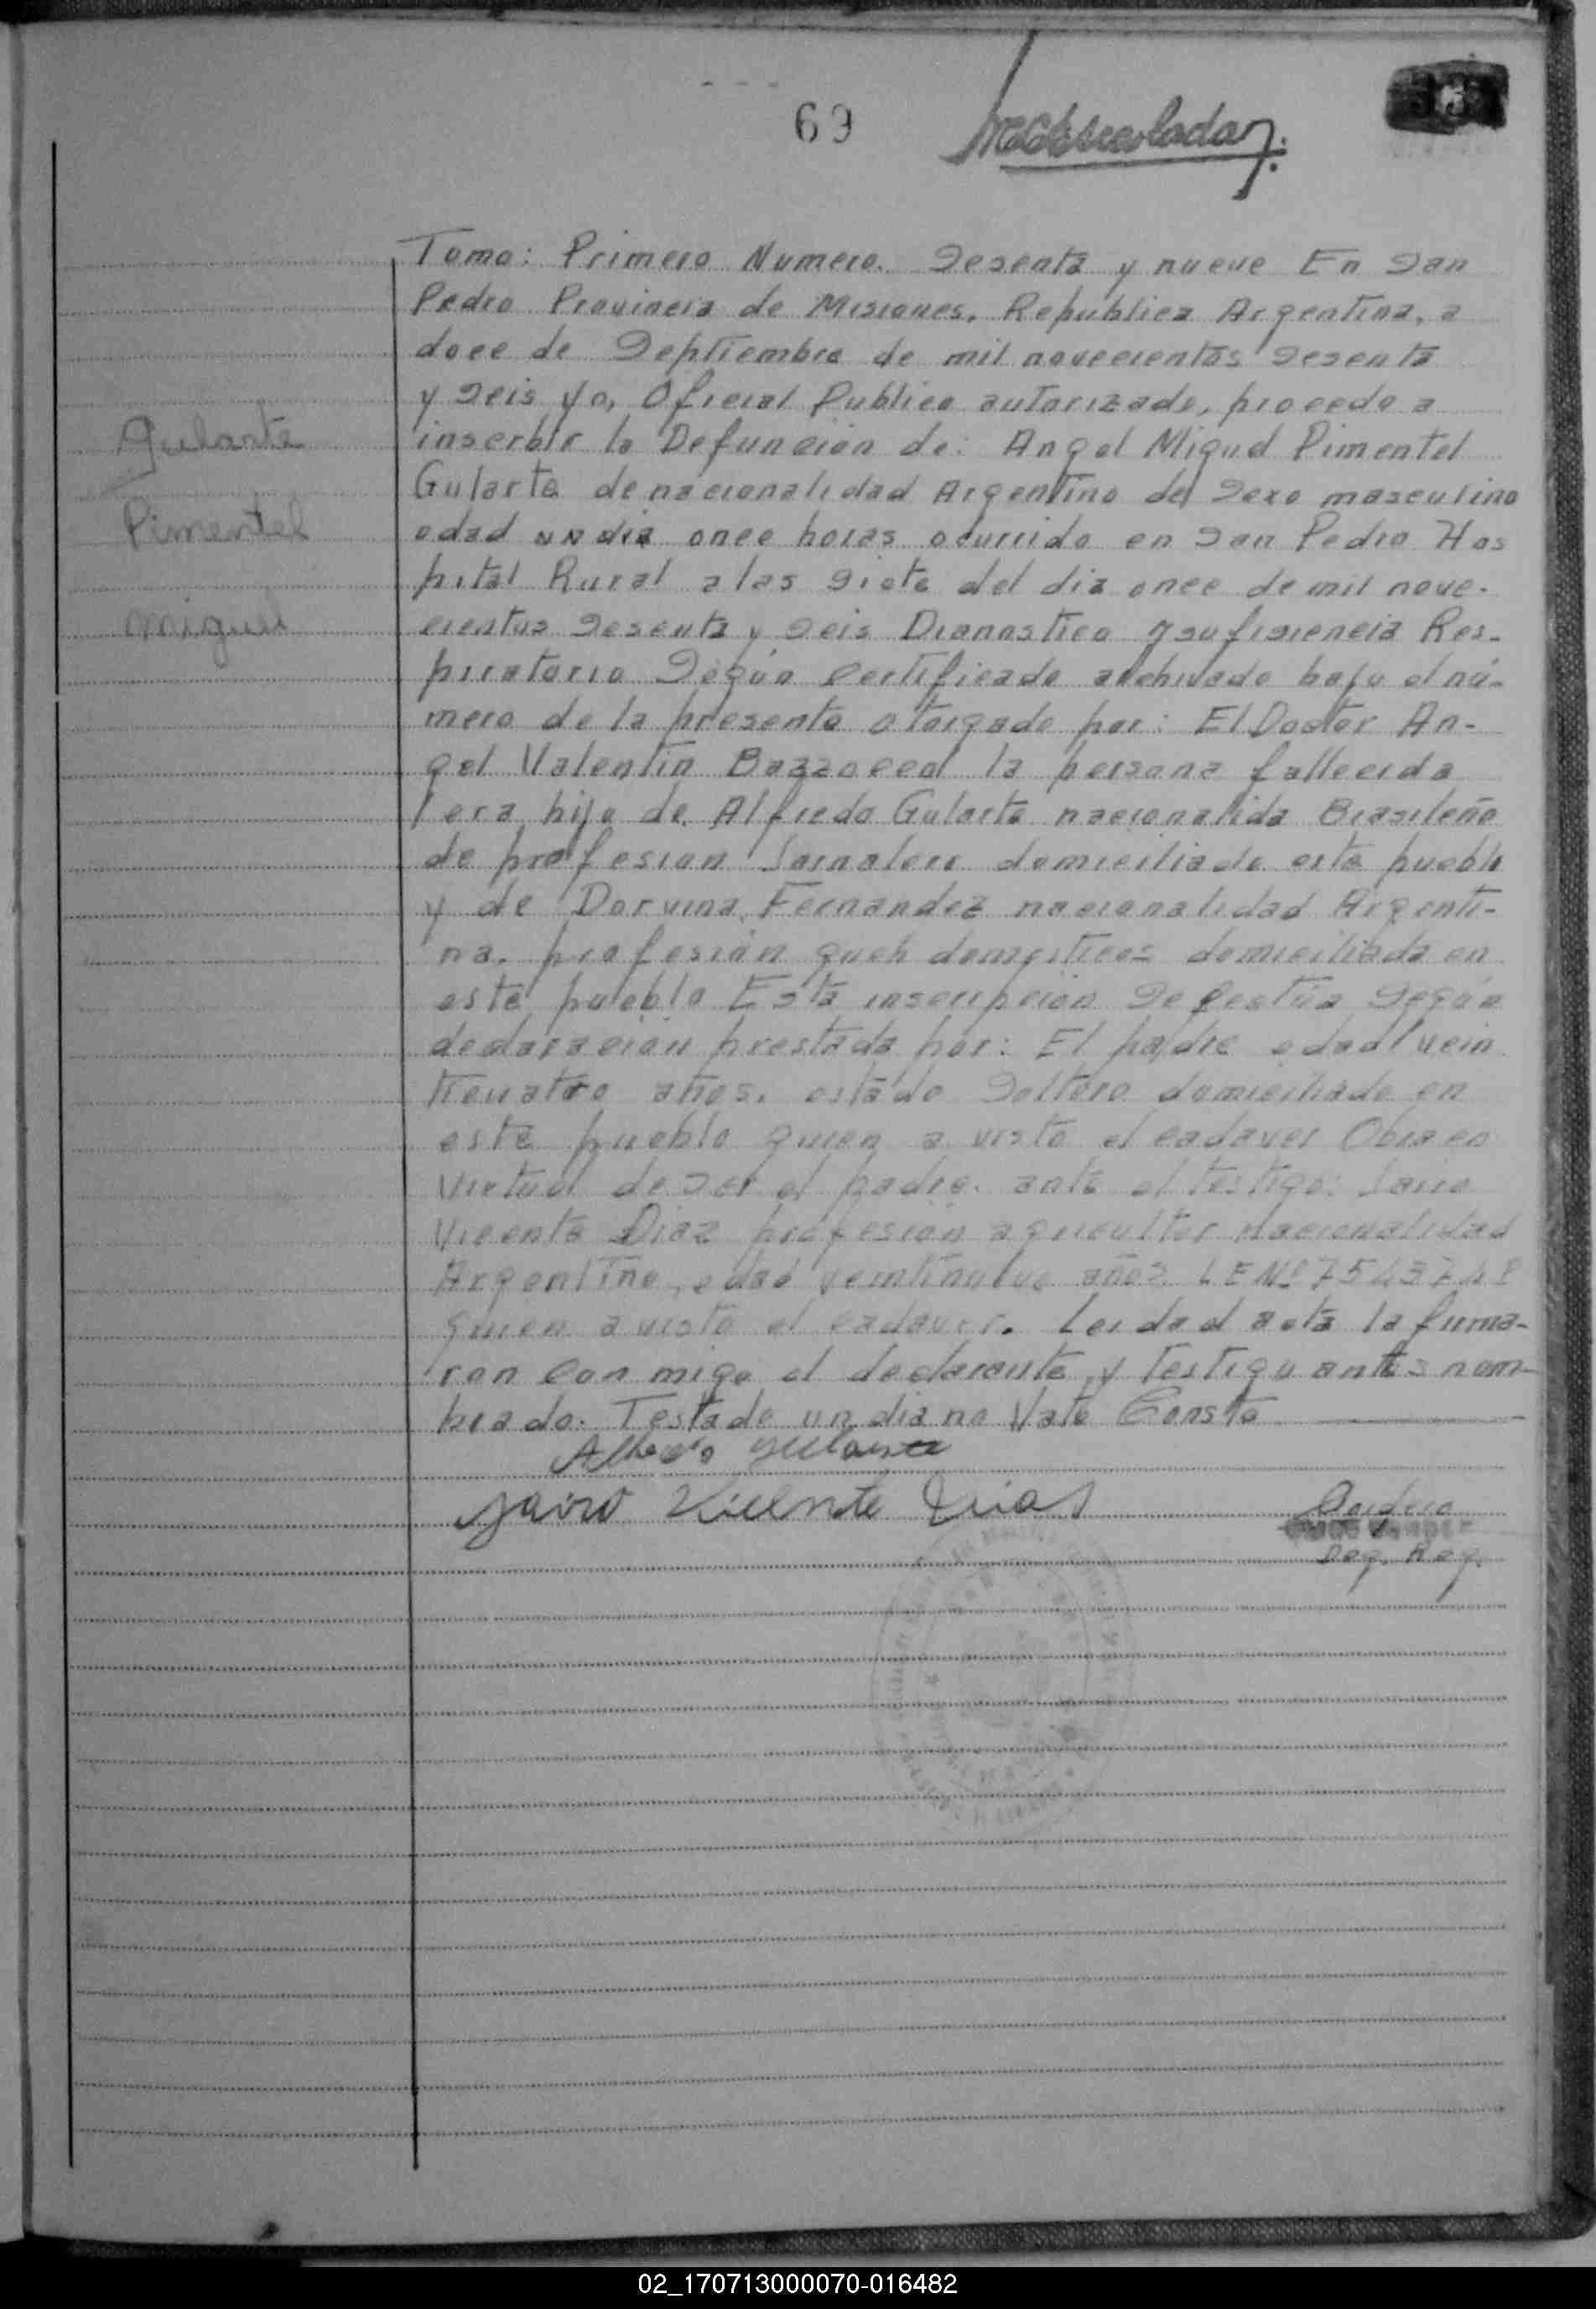 69
Tomo: Primero Numero. Sesenta y nueve En San
Pedro Provincia de Misiones, Republica Argentina, a
doce de Septiembre de mil novecientos Sesenta
y Seis yo, Oficial Publico autorizado, procedo a
inscrbir la Defunción de: Angel Miguel Pimentel
Gularte de nacionalidad Argentino del Sexo masculino
edad un dia once horas ocurrido en San Pedro Hos
pital Rural a las Siete del dia once de mil nove-
cientos Sesenta y Seis Dianostico Insuficiencia Res-
piratorio Según Certificado archivado bajo el nú-
mero de la presente otorgado por: El Doctor An-
gel Valentin la persona fallecida
era hijo de Alfredo Gularte nacionalida Brasileño
de profesion Jornalero domiciliado este pueblo
y de Dorvina Fernandez nacionalidad Argenti-
na. profesión queh domesticos domiciliada en
este pueblo Esta inscripcion Se efectúa Según
declaracion prestada por: El padre edad vein
ticuatro años. estado Soltero domiciliado en
este pueblo quien a visto el cadaver Obra en
Virtud de Ser el padre. ante el testigo: Jairo
Vicente Diaz profesión agricultor nacionalidad
Argentino, edad veintinueve años L E Nº
quien a visto el cadaver. Leida el acta la firma-
ron con migo el declarante y Testigo antes nom-
brado. Testado un dia no Vale Conste
Gularte
Pimentel
Miguel
Alfredo Gularte
Jairo Vicente Dias
Deg. Reg.
02_170713000070-016482